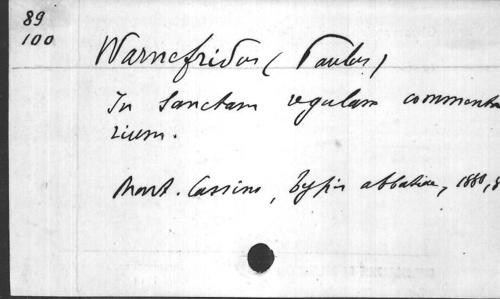 89
100
Warnefridus (Paulus)
In Sanctam regulam commenta
rium.
Mont. Cassino, typis abbatiae, 1880, 8